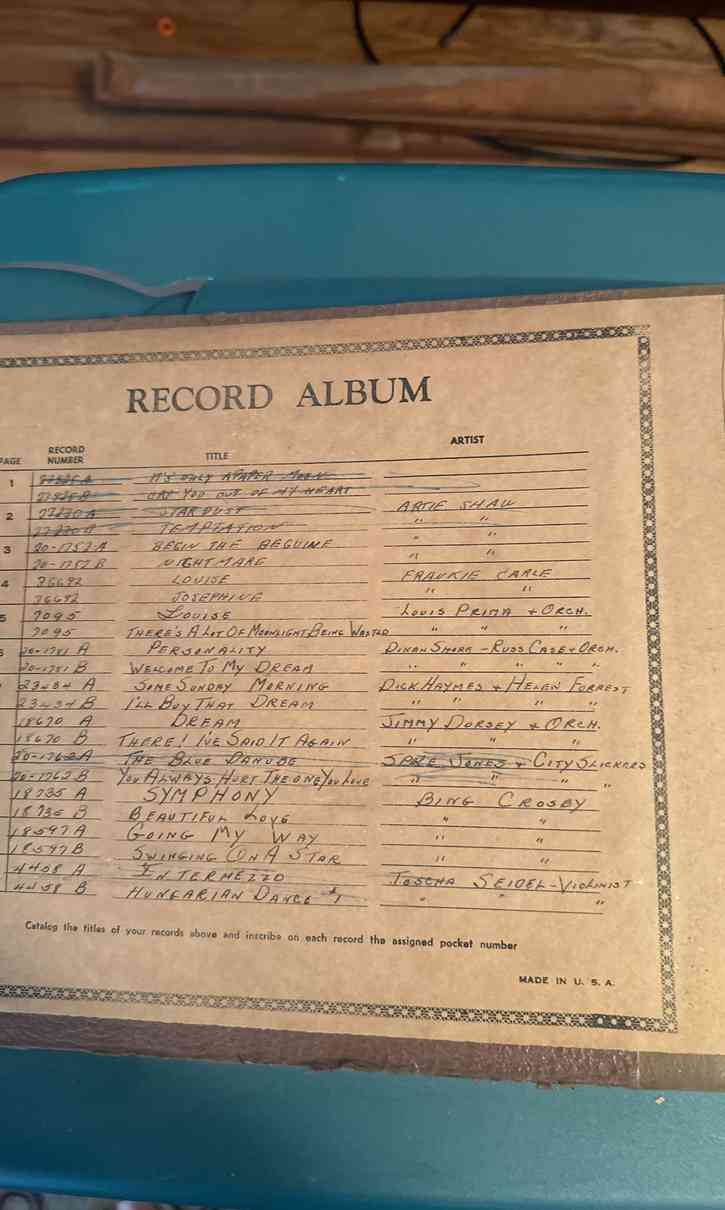 RECORD ALBUM
PAGE RECORD NUMBER TITLE ARTIST
1 IT'S ONLY A PAPER MOON
CRY YOU OUT OF MY HEART
2 STAR DUST ARTIE SHAW
TEMPTATION " "
3 20-1752-A BEGIN THE BEGUINE " "
20-1752 B NIGHTMARE " "
4 36692 LOUISE FRANKIE CARLE
36692 JOSEPHINE " "
5 7095 LOUISE LOUIS PRIMA + ORCH.
7095 THERE'S A LOT OF MOONLIGHT BEING WASTED " " "
20-1781 A PERSONALITY DINAH SHORE - RUSS CASE + ORCH.
20-1781 B WELCOME TO MY DREAM " " " " "
23434 A SOME SUNDAY MORNING DICK HAYMES + HELEN FORREST
23434 B I'LL BUY THAT DREAM " " " "
18670 A DREAM JIMMY DORSEY + ORCH.
18670 B THERE! I'VE SAID IT AGAIN " " "
20-1762 A THE BLUE DANUBE SPIKE JONES + CITY SLICKERS
20-1762 B YOU ALWAYS HURT THE ONE YOU LOVE " " "
18735 A SYMPHONY BING CROSBY
18735 B BEAUTIFUL LOVE " "
18597 A GOING MY WAY " "
18597 B SWINGING ON A STAR " "
4458 A INTERMEZZO TOSCHA SEIDEL-VIOLINIST
4458 B HUNGARIAN DANCE #1 " " "
Catalog the titles of your records above and inscribe on each record the assigned pocket number
MADE IN U. S. A.